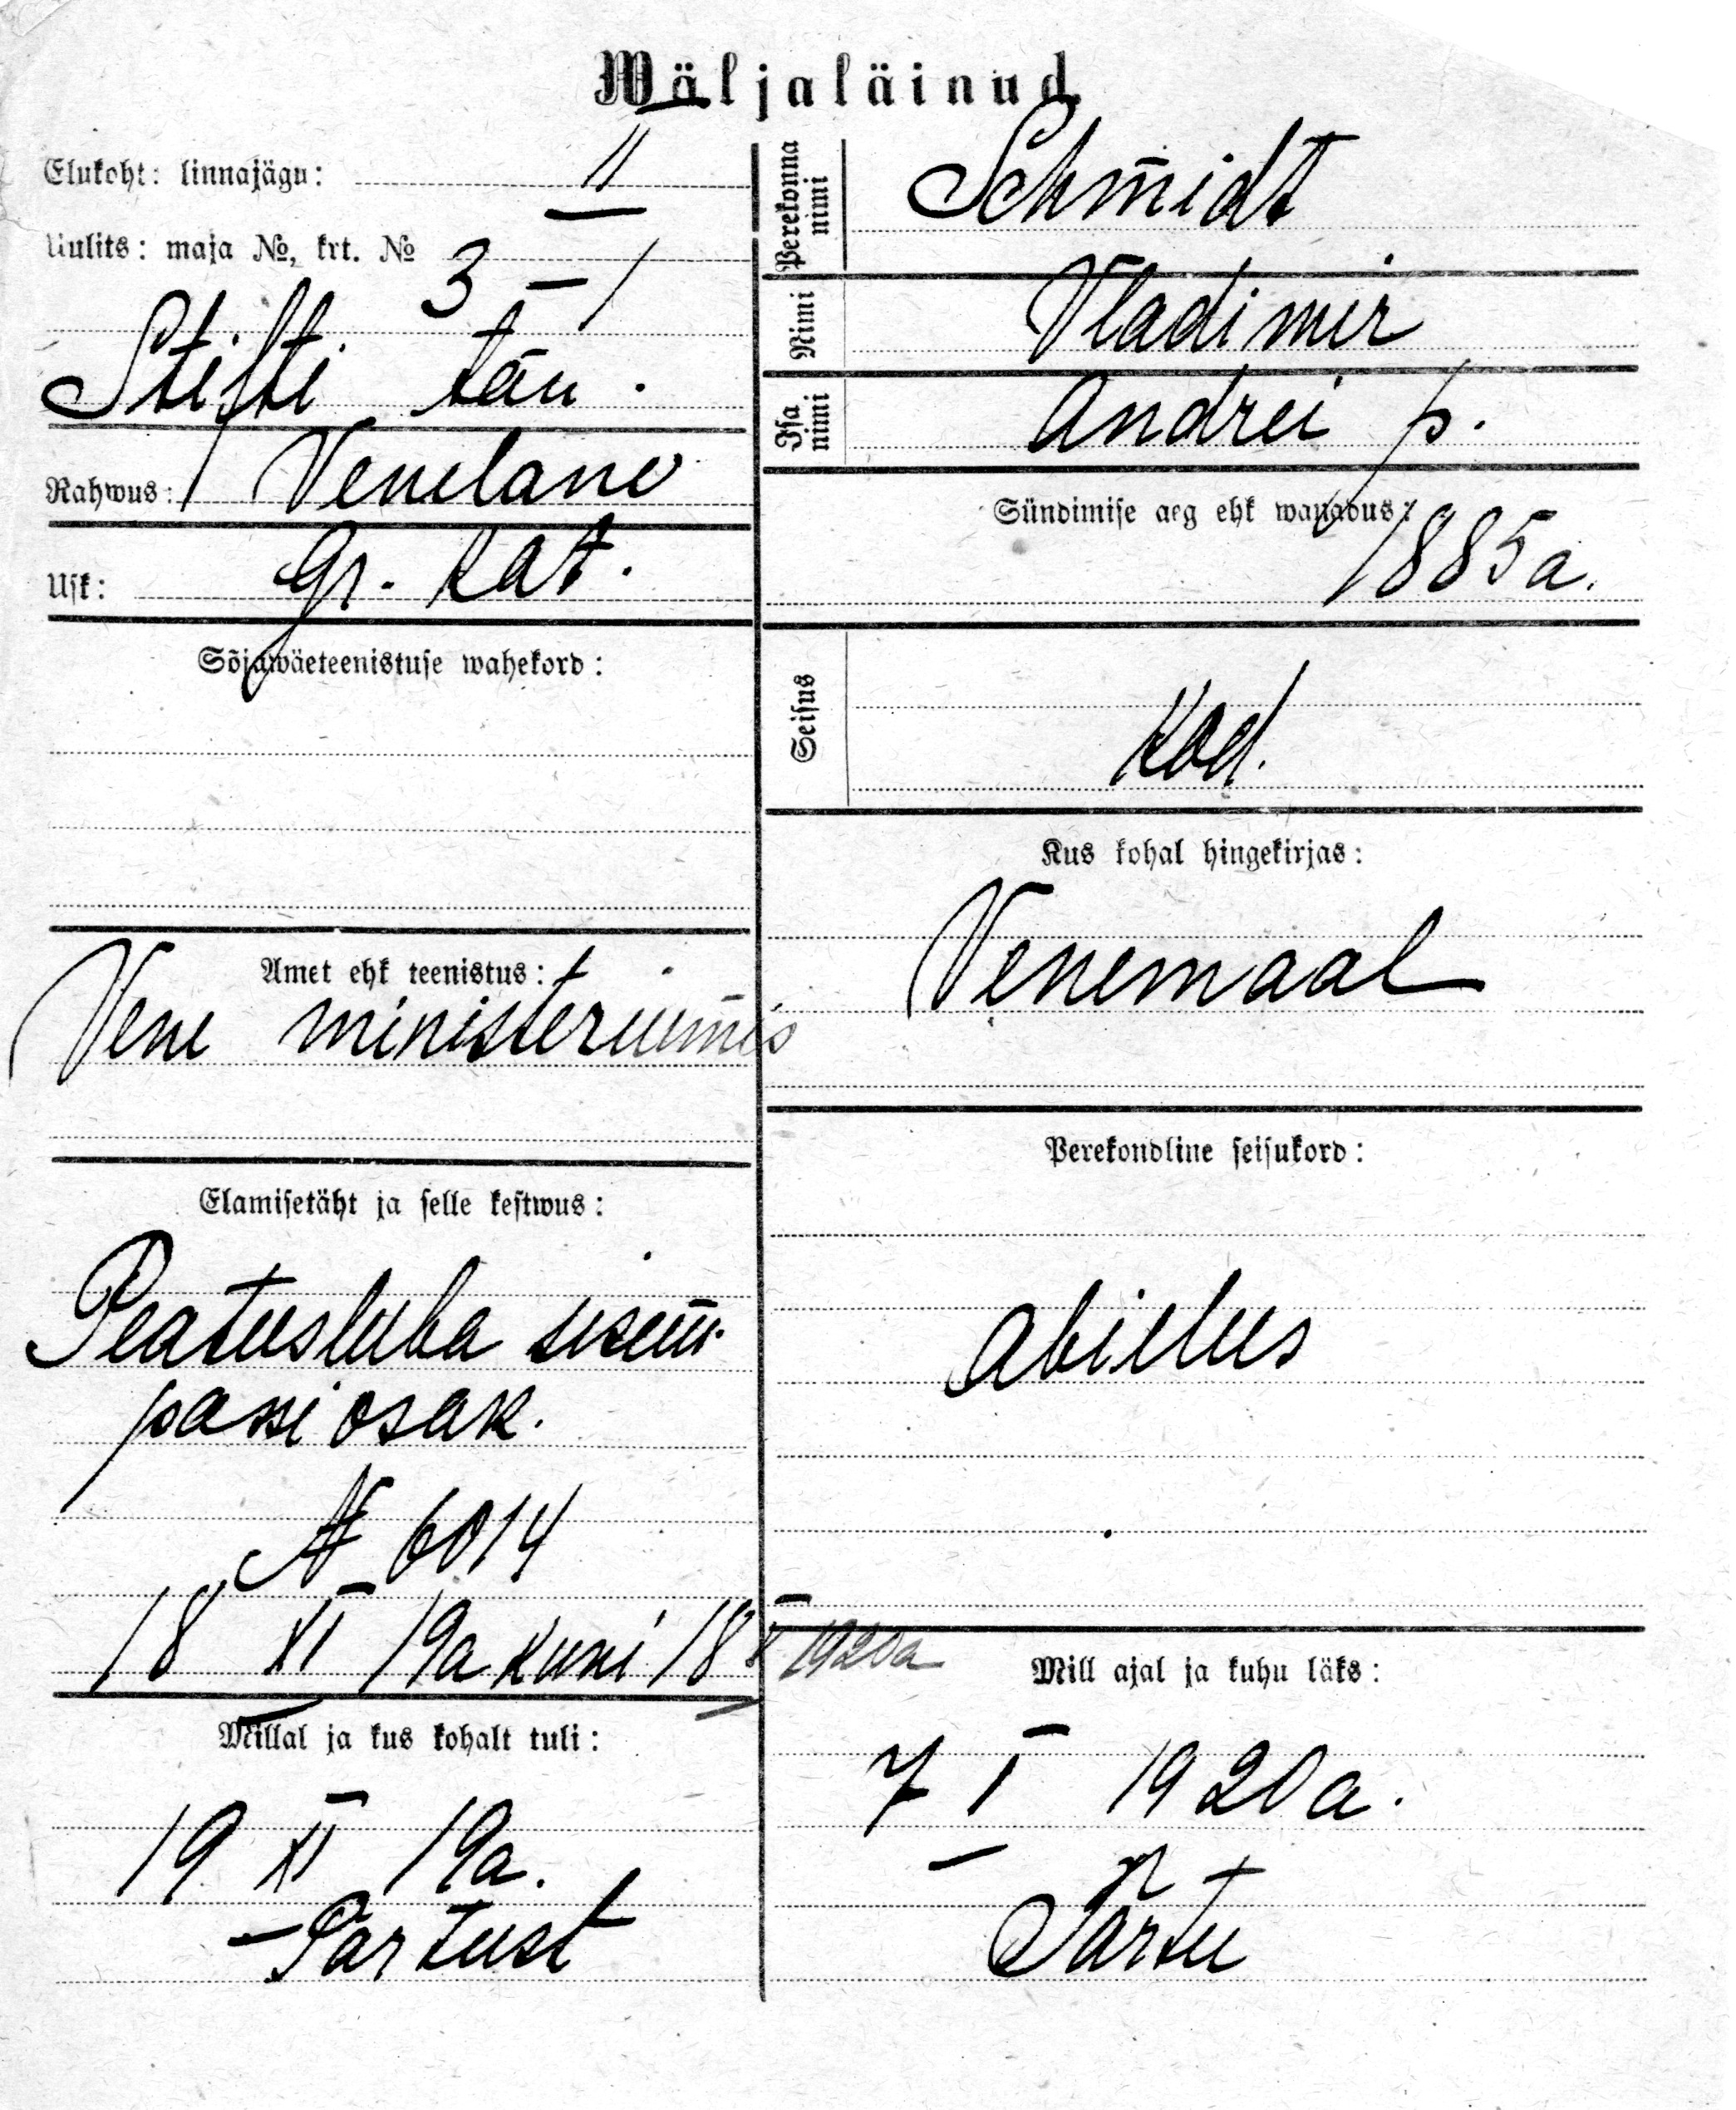 Wäljaläinud
Elukoht: linnajägu: II
Uulits: maja №, krt. № 3 – 1
Stifti tän.
Rahwus: Venelane
Usk: Gr. Kat.
Sõjawäeteenistuse wahekord:
Amet ehk teenistus:
Vene ministeriumis
Elamisetäht ja selle kestwus:
Peatusluba sisem.
passi osak.
№ 6014
18 XI 19a kuni 18 I 1920a
Millal ja kus kohalt tuli:
19 XI 19a.
Tartust
Perekonna
nimi
Schmidt
Nimi
Vladimir
Isa
nimi
Andrei p.
Sündimise aeg ehk wanadus:
1885a.
Seisus
Kod.
Kus kohal hingekirjas:
Venemaal
Perekondline seisukord:
abielus
Mill ajal ja kuhu läks:
7 I 1920a.
Tartu